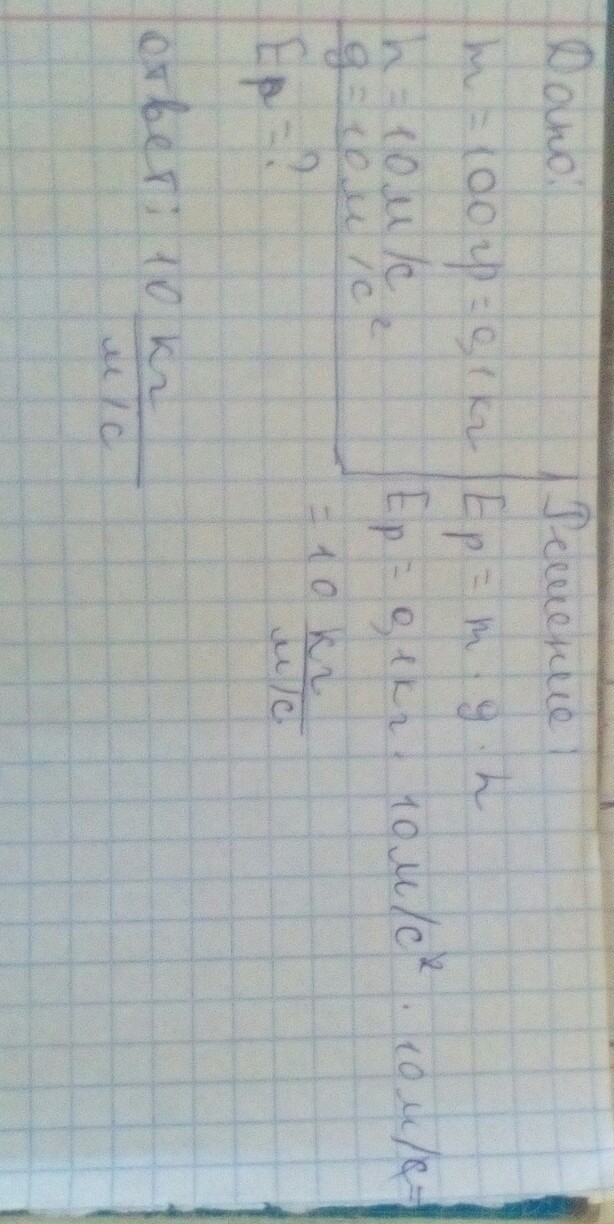 Дано:
m = 100гр = 0,1 кг
h = 10 м/с
g = 10 м/с²
Eр = ?
Решение:
Eр = m · g · h
Eр = 0,1кг · 10м/с² · 10м/с =
= 10 кг / м/с
ответ: 10 кг / м/с